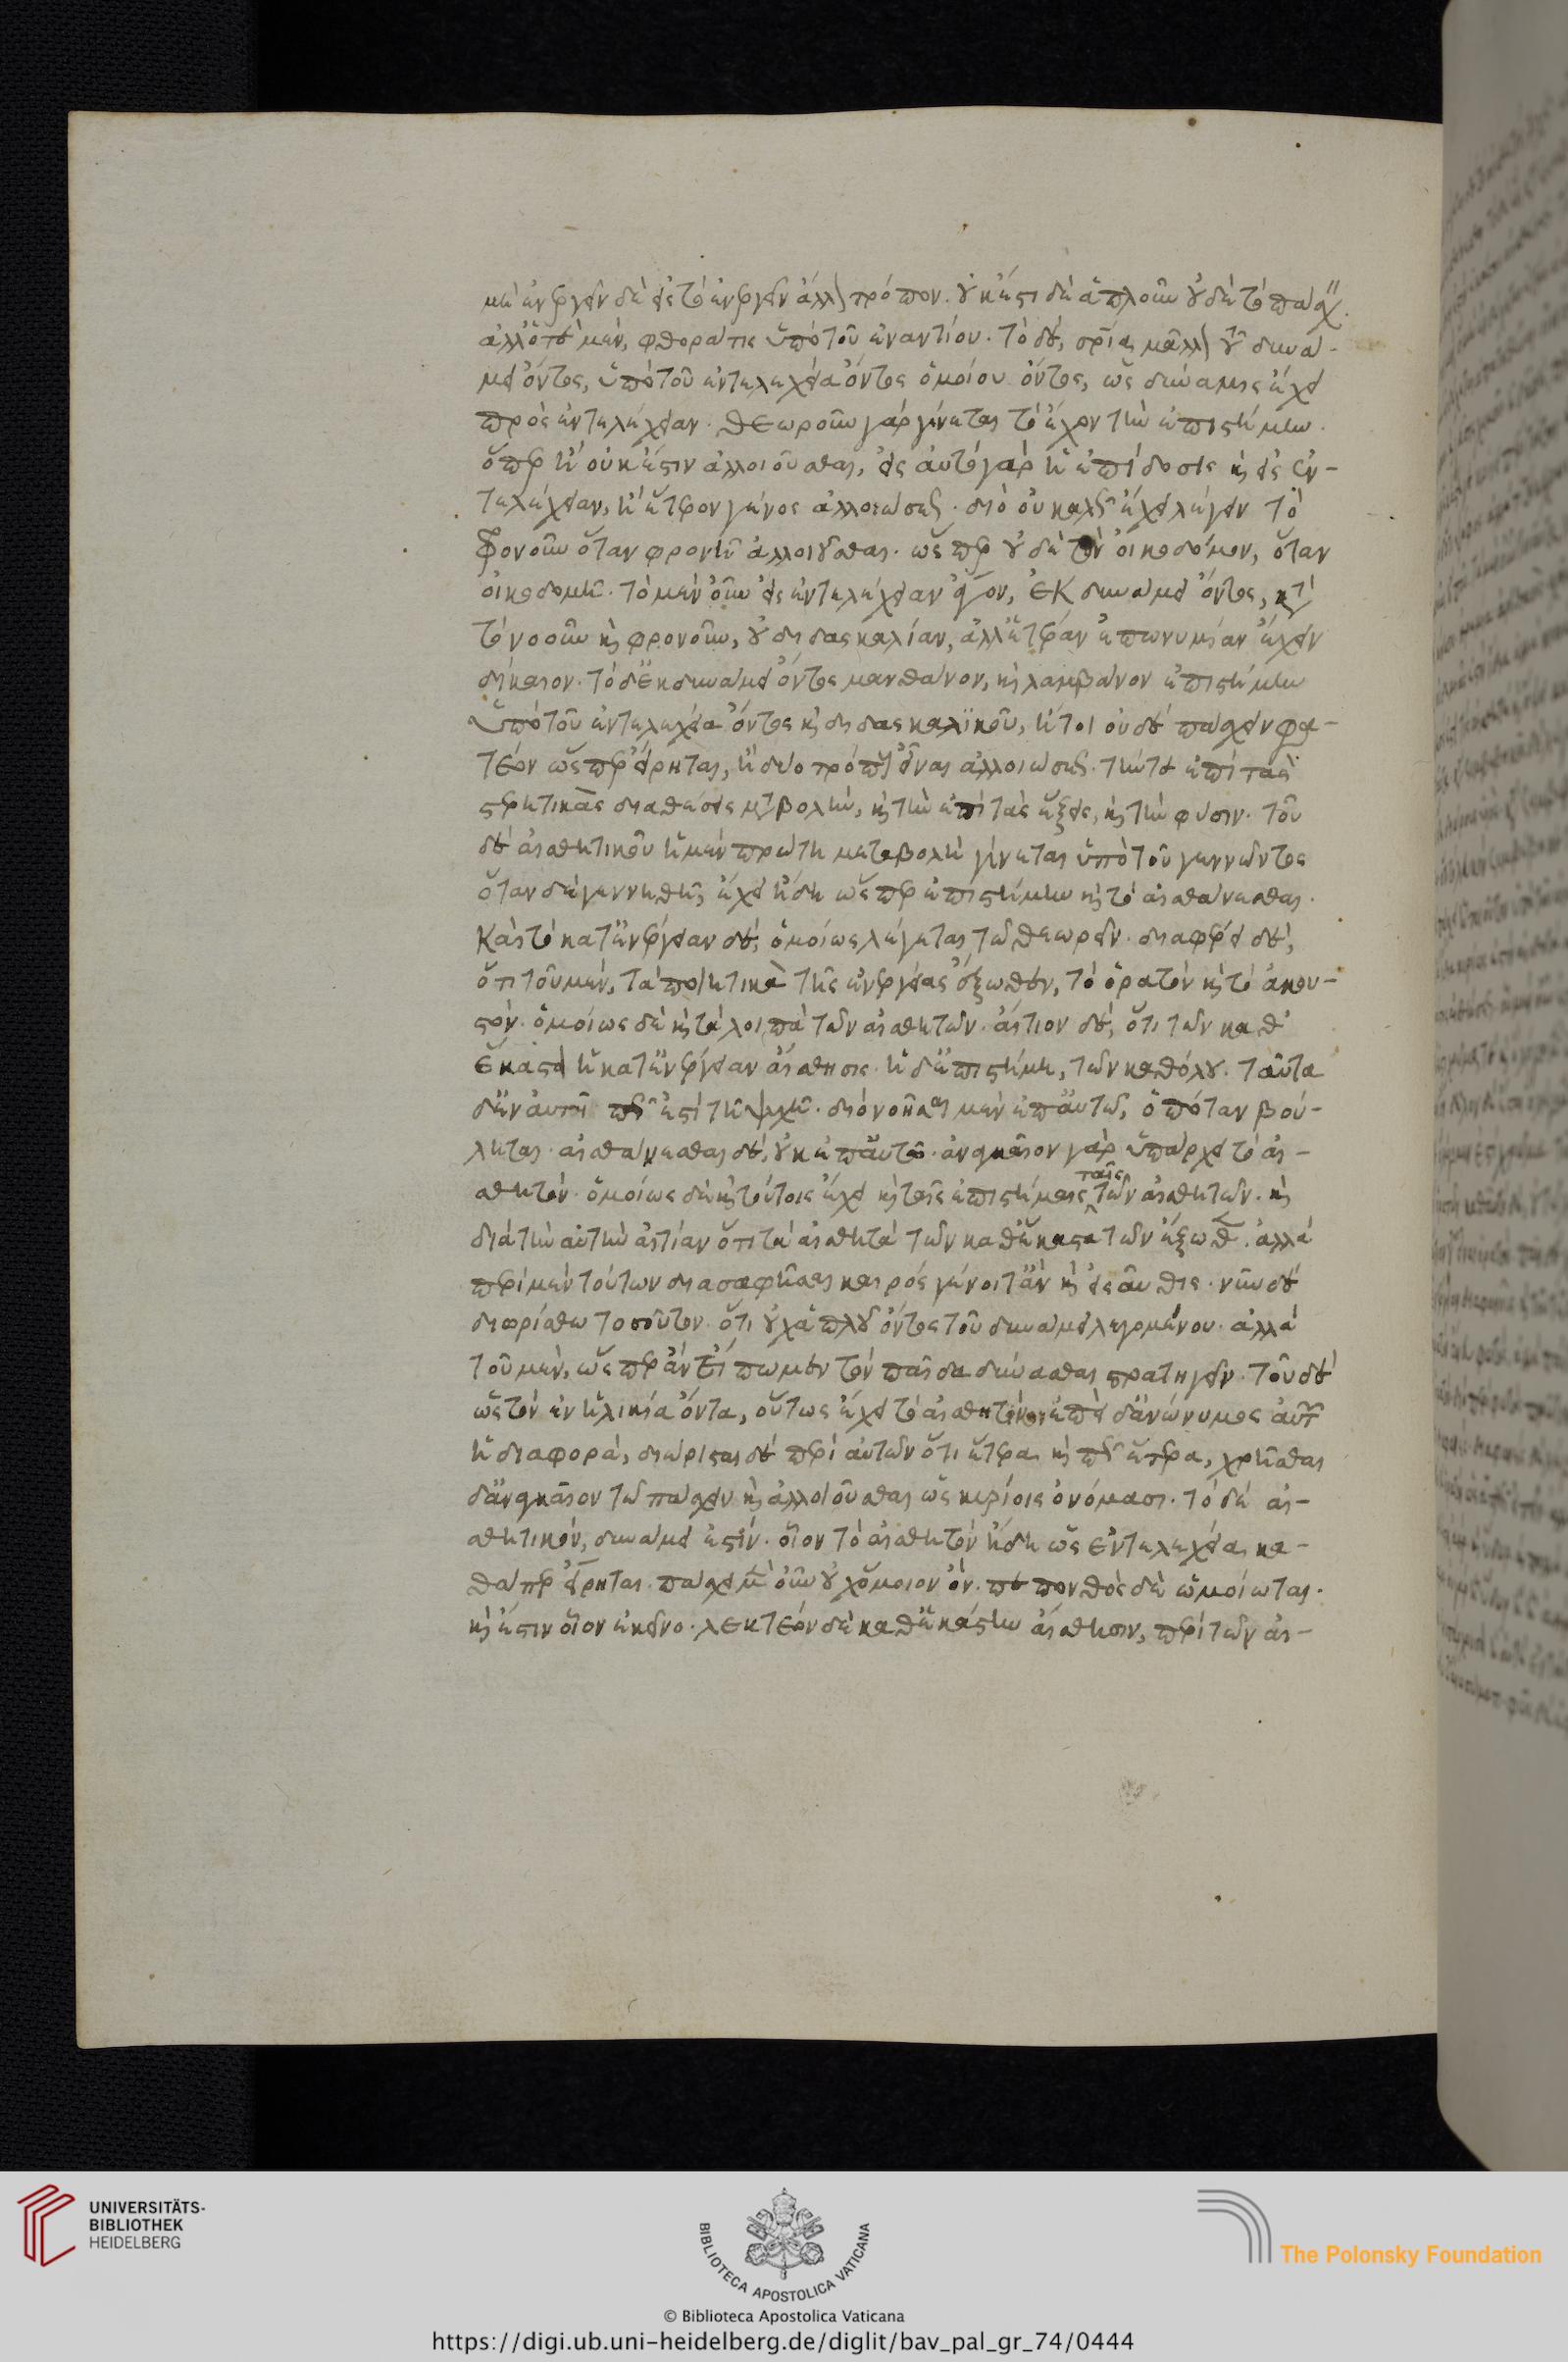 μὴ ἐνεργεῖν δὲ εἰς τὸ ἐνεργεῖν ἄλλον τρόπον. οὐκ ἔστι δὲ ἁπλοῦν οὐδὲ τὸ πάσχειν.
ἀλλὰ τὸ μὲν, φθορά τις ὑπὸ τοῦ ἐναντίου. τὸ δὲ, σωτηρία μᾶλλον τοῦ δυνά-
μει ὄντος, ὑπὸ τοῦ ἐντελεχεία ὄντος ὁμοίου ὄντος, ὡς δύναμις ἔχει
πρὸς ἐντελέχειαν. θεωροῦν γὰρ γίνεται τὸ ἔχον τὴν ἐπιστήμην.
ὅπερ ἢ οὐκ ἔστιν ἀλλοιοῦσθαι, εἰς αὐτὸ γὰρ ἡ ἐπίδοσις καὶ εἰς ἐν-
τελέχειαν, ἢ ἕτερον γένος ἀλλοιώσεως. διὸ οὐ καλῶς ἔχει λέγειν τὸ
φρονοῦν ὅταν φρονῇ ἀλλοιοῦσθαι. ὥσπερ οὐδὲ τὸν οἰκοδόμον, ὅταν
οἰκοδομῇ. τὸ μὲν οὖν εἰς ἐντελέχειαν ἄγον, ἐκ δυνάμει ὄντος, κατὰ
τὸ νοοῦν καὶ φρονοῦν, οὐ διδασκαλίαν, ἀλλ' ἑτέραν ἐπωνυμίαν ἔχειν
δίκαιον. τὸ δ' ἐκ δυνάμει ὄντος μανθάνον, καὶ λαμβάνον ἐπιστήμην
ὑπὸ τοῦ ἐντελεχεία ὄντος καὶ διδασκαλικοῦ, ἤτοι οὐδὲ πάσχειν φα-
τέον ὥσπερ εἴρηται, ἢ δύο τρόπους εἶναι ἀλλοιώσεως. τήν τε ἐπὶ τὰς
στερητικὰς διαθέσεις μεταβολὴν, καὶ τὴν ἐπὶ τὰς ἕξεις, καὶ τὴν φύσιν. τοῦ
δὲ αἰσθητικοῦ ἡ μὲν πρώτη μεταβολὴ γίνεται ὑπὸ τοῦ γεννῶντος
ὅταν δὲ γεννηθῇ, ἔχει ἤδη ὥσπερ ἐπιστήμην καὶ τὸ αἰσθάνεσθαι.
Καὶ τὸ κατ' ἐνέργειαν δὲ, ὁμοίως λέγεται τῶ θεωρεῖν. διαφέρει δὲ,
ὅτι τοῦ μὲν, τὰ ποιητικὰ τῆς ἐνεργείας ἔξωθεν, τὸ ὁρατὸν καὶ τὸ ἀκου-
στόν. ὁμοίως δὲ καὶ τὰ λοιπὰ τῶν αἰσθητῶν. αἴτιον δὲ, ὅτι τῶν καθ'
ἕκαστα ἡ κατ' ἐνέργειαν αἴσθησις. ἡ δ' ἐπιστήμη, τῶν καθόλου. ταῦτα
δ' ἐν αὐτῇ πώς ἐστι τῇ ψυχῇ. διὸ νοῆσαι μὲν ἐπ' αὐτῶ, ὁπόταν βού-
ληται. αἰσθάνεσθαι δὲ, οὐκ ἐπ' αὐτῶ. ἀναγκαῖον γὰρ ὑπάρχει τὸ αἰ-
σθητόν. ὁμοίως δὲ καὶ τούτοις ἔχει καὶ ταῖς ἐπιστήμαις ταῖς τῶν αἰσθητῶν. καὶ
διὰ τὴν αὐτὴν αἰτίαν ὅτι τὰ αἰσθητὰ τῶν καθ' ἕκαστα τῶν ἔξωθεν. ἀλλὰ
περὶ μὲν τούτων διασαφῆσαι καιρὸς γένοιτ' ἂν καὶ εἰσαῦθις. νῦν δὲ
διωρίσθω τοσοῦτον. ὅτι οὐχ ἁπλοῦ ὄντος τοῦ δυνάμει λεγομένου. ἀλλὰ
τοῦ μὲν, ὥσπερ ἂν εἴπωμεν τὸν παῖδα δύνασθαι στρατηγεῖν. τοῦ δὲ
ὡς τὸν ἐν ἡλικία ὄντα, οὕτως ἔχει τὸ αἰσθητικόν. ἐπεὶ δ' ἀνώνυμος αὐτῶν
ἡ διαφορά, διώρισται δὲ περὶ αὐτῶν ὅτι ἕτερα, καὶ πῶς ἕτερα, χρῆσθαι
δ' ἀναγκαῖον τῶ πάσχειν καὶ ἀλλοιοῦσθαι ὡς κυρίοις ὀνόμασι. τὸ δὲ αἰ-
σθητικὸν, δυνάμει ἐστίν. οἷον τὸ αἰσθητὸν ἤδη ὡς ἐντελεχεία, κα-
θάπερ εἴρηται. πάσχει μὲν οὖν οὐχ ὅμοιον ὄν. πεπονθὸς δὲ ὡμοίωται.
καὶ ἔστιν οἷον ἐκεῖνο. λεκτέον δὲ καθ' ἑκάστην αἴσθησιν, περὶ τῶν αἰ-
UNIVERSITÄTS-
BIBLIOTHEK
HEIDELBERG
BIBLIOTECA APOSTOLICA VATICANA
The Polonsky Foundation
© Biblioteca Apostolica Vaticana
https://digi.ub.uni-heidelberg.de/diglit/bav_pal_gr_74/0444